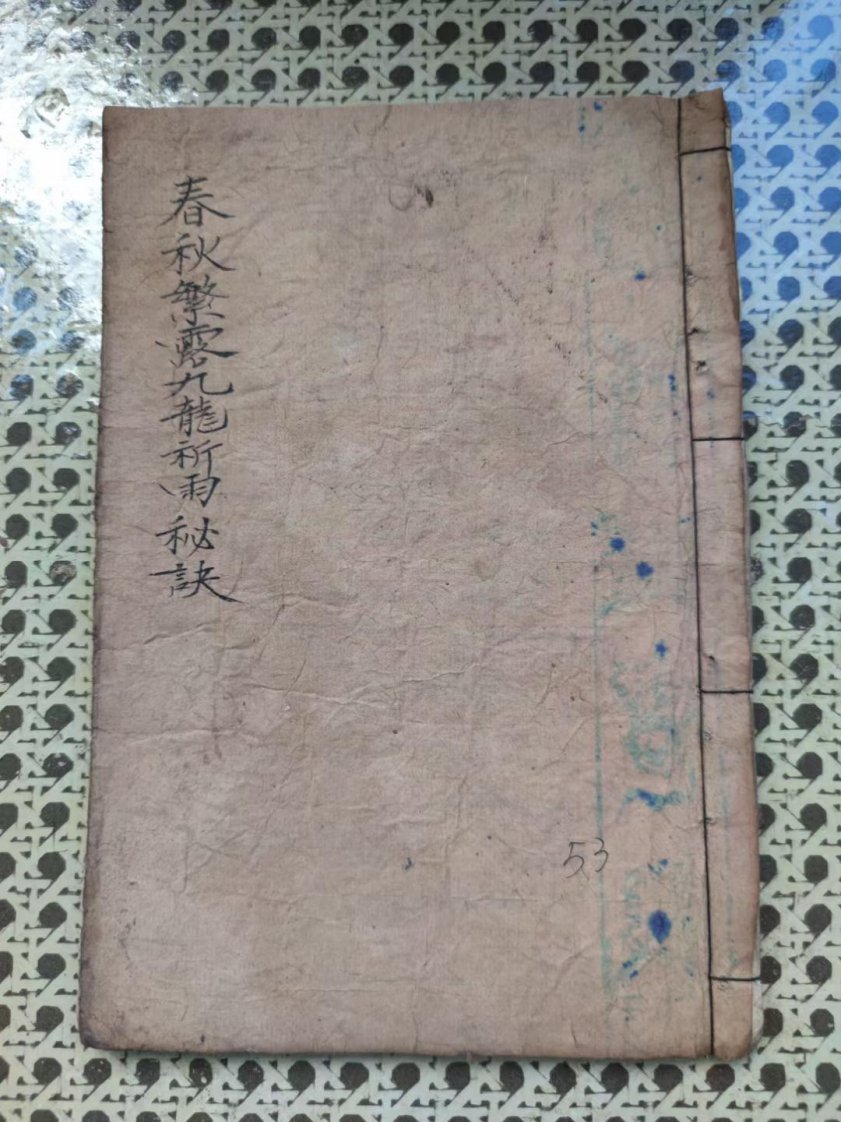 春秋繁露九龍祈雨秘訣
53